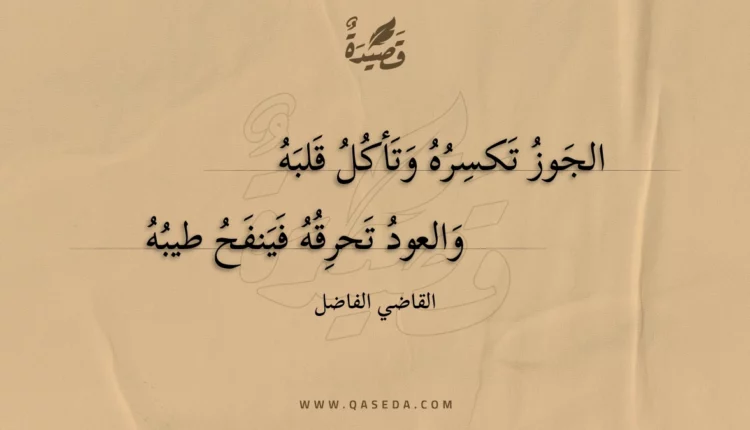 قَصِيدَةٌ
الجَوزُ تَكسِرُهُ وَتَأكُلُ قَلبَهُ
وَالعودُ تَحرِقُهُ فَيَنفَحُ طيبُهُ
القاضي الفاضل
WWW.QASEDA.COM